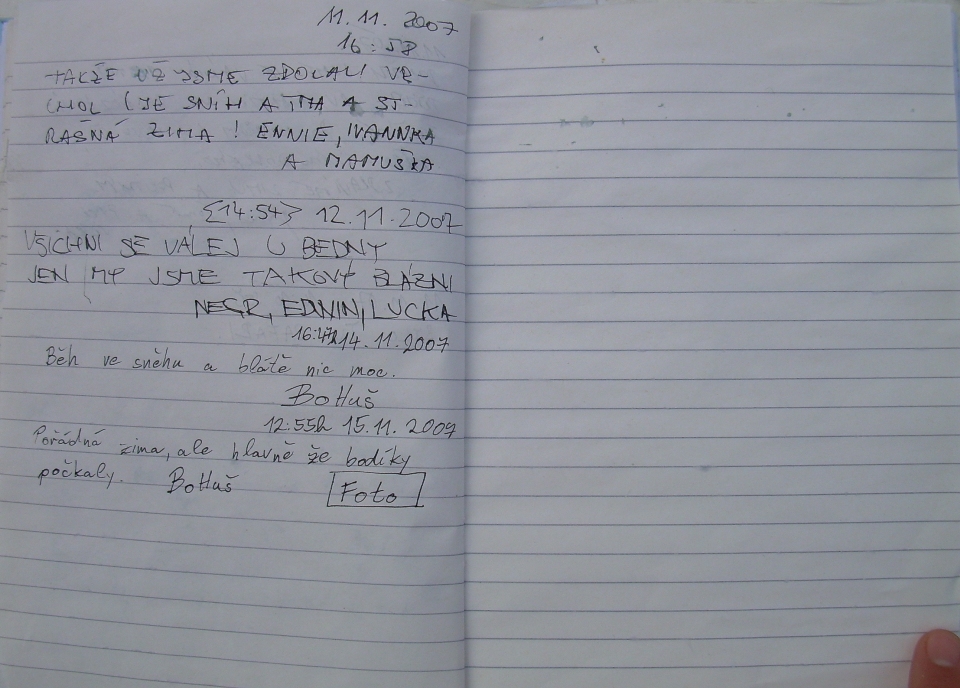 11.11. 2007
16:58
TAKŽE UŽ JSME ZDOLALI VR-
CHOL (JE SNÍH A TMA A ST-
RAŠNÁ ZIMA! ENNIE, IVANNKA
A MAMUŠKA
{14:54} 12.11.2007
VŠICHNI SE VÁLEJ U BEDNY
JEN MY JSME TAKOVÝ BLÁZNI
NEGR, EDWIN, LUCKA
14.11.2007
Běh ve sněhu a blátě nic moc.
BoHuš
12:55h 15.11.2007
Pořádná zima, ale hlavně že bodíky
počkaly. BoHuš Foto